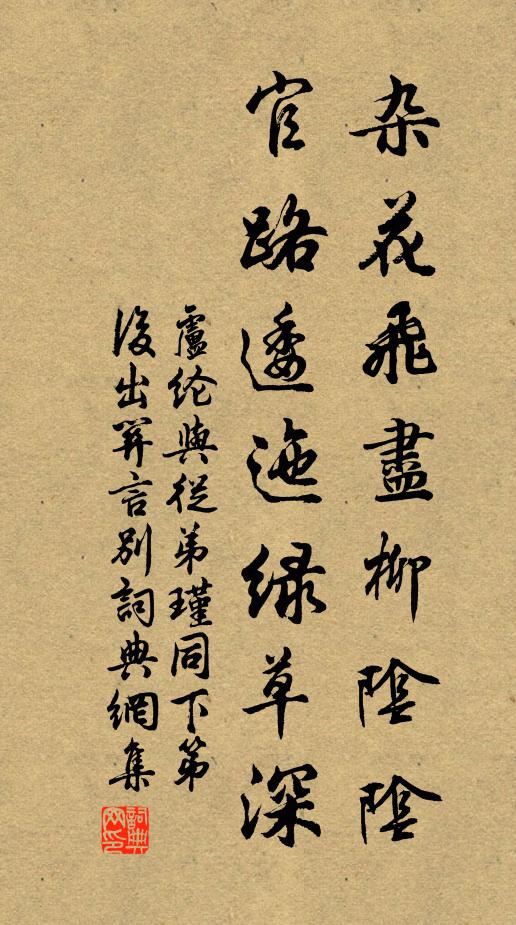 杂花飛盡柳陰陰
官路逶迤绿草深
盧纶與從弟瑾同下第
後出関言別詞典網集
詞典网印